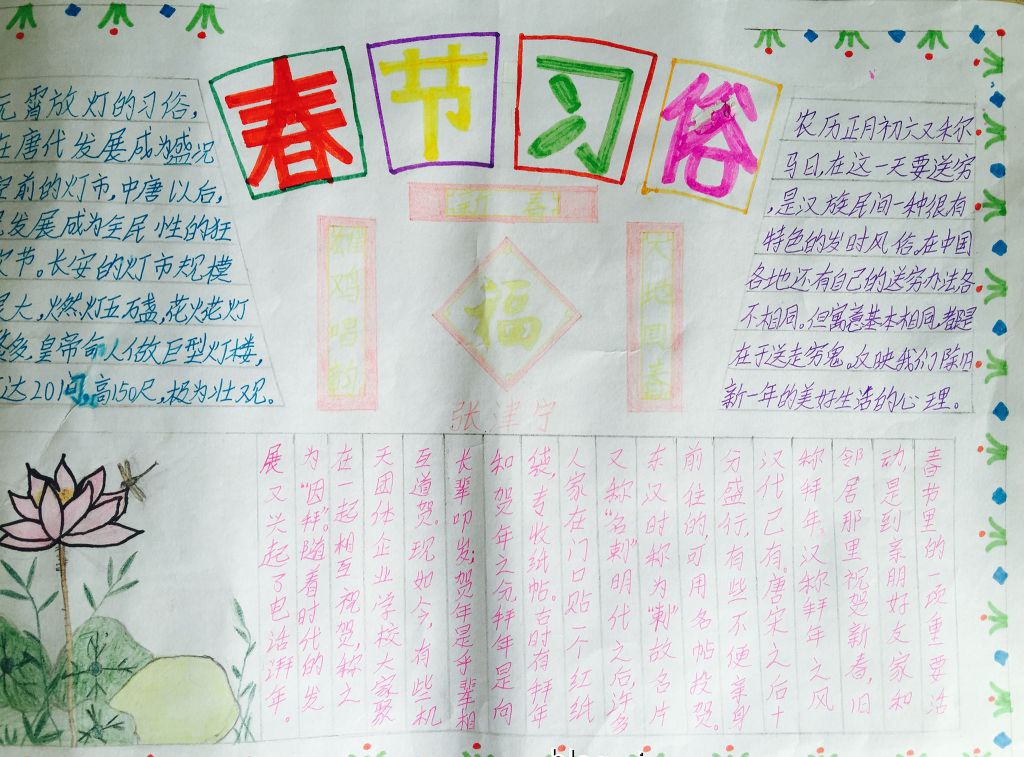 春节习俗
元宵放灯的习俗,
在唐代发展成为盛况
空前的灯市,中唐以后,
已发展成为全民性的狂
欢节。长安的灯市规模
最大,燃灯五万盏,花火花灯
繁多,皇帝命人做巨型灯楼,
达201间,高150尺,极为壮观。
新春
雄鸡唱韵
福
大地回春
张津宁
农历正月初六又称
马日,在这一天要送穷
,是汉族民间一种很有
特色的岁时风俗。在中国
各地还有自己的送穷办法各
不相同。但寓意基本相同,都是
在于送走穷鬼。反映我们除旧
新一年的美好生活的心理。
春节里的一项重要活
动,是到亲朋好友家和
邻居那里祝贺新春,旧
称拜年。汉称拜年之风
汉代已有。唐宋之后十
分盛行,有些不便亲身
前往的,可用名帖投贺。
东汉时称为"刺"故名片
又称"名刺"明代之后,许多
人家在门口贴一个红纸
袋,专收纸帖。古时有拜年
和贺年之分拜年是向
长辈叩岁;贺年是平辈相
互道贺。现如今,有些机
天团体企业学校大家聚
在一起相互祝贺,称之
为"因拜"。随着时代的发
展又兴起了电话拜年。